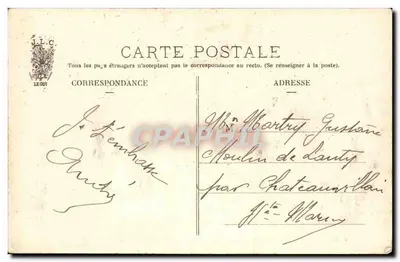 J.L.C
CARTE POSTALE
Tous les pays étrangers n'acceptent pas la correspondance au recto. (Se renseigner à la poste).
CORRESPONDANCE
ADRESSE
Je t'embrasse
Mon Martry Gustave
Moulin de Lanty
par Chateauvillain
Hte Marne
CPAPHIL